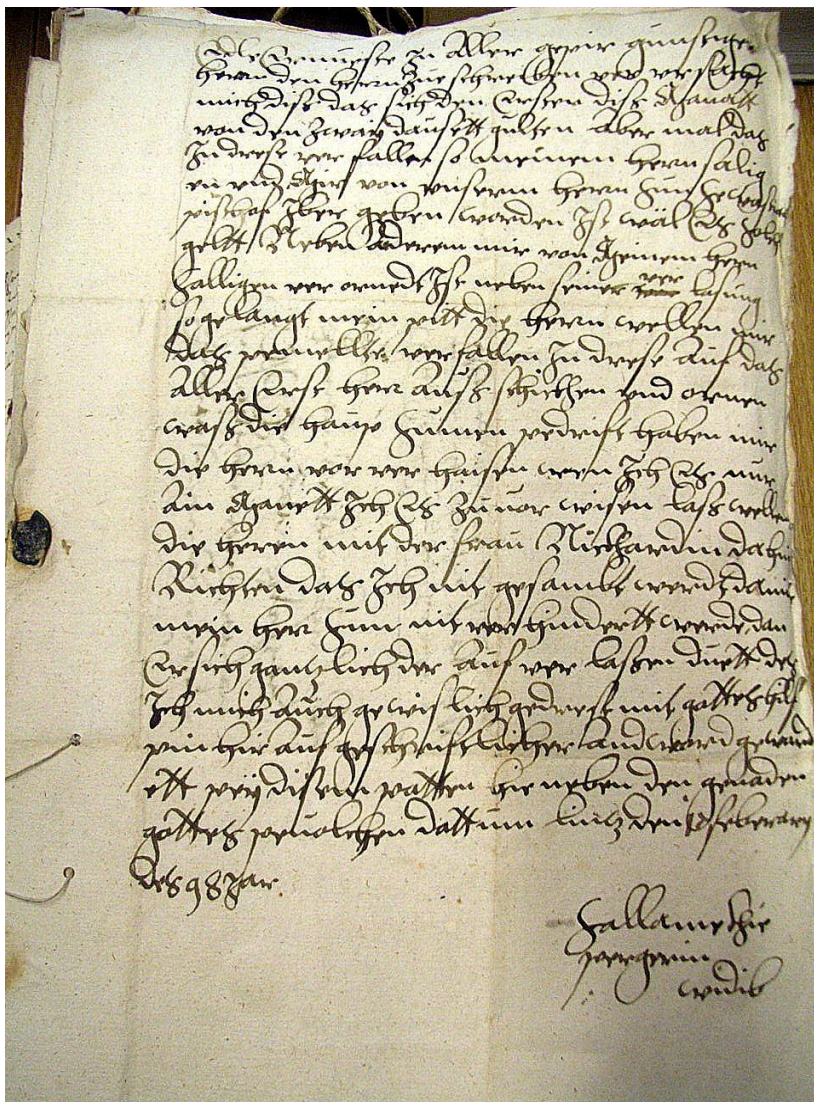 Edle Ernueste In Aller gepir gunstige
herrn den herrn Zue schreiben ver vrsacht
mich dise das sich den Ersten diss Manatt
von den Zway dausett gulten aber mal das
In drese ver fallen so meinem hern salig
en vnd Mir von vnserm hern
pischof Iber geben worden Ist wal Es solch
geltt Neben Anderem mir von Meinem hern
salligen ver ornedt Ist neben seiner ver lasung
so gelangt mein pitt die hern wellen mir
das pemellte ver fallen In drese auf das
aller Erst herr auss schicken vnd ornen
wass die haup sumen pedrift haben mir
die hern vor ver haisen wen Ich Es nur
ain Manett Ich Es Zu uor wisen lass wellen
die heren mit der frau Nickhardin dahin
Richten das Ich nit gesambt werdt damit
mein her sun nit ver hindertt werde, dan
Er sich gantzlich der auf ver lassen duett des
Ich mich auch gewislich gedrest mit gattes hilf
pin hir auf geschriftlicher andword geward
ett pey disem patten hie neben den genaden
gattes peuolchen dattum lintz den febervary
des 98 Jar.
Sallame
pergerin
widib